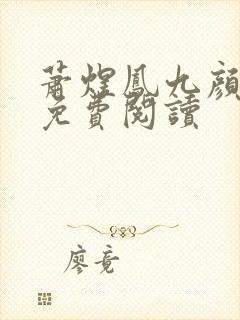 蕭煜鳳九顏
免費閱讀
廖竟